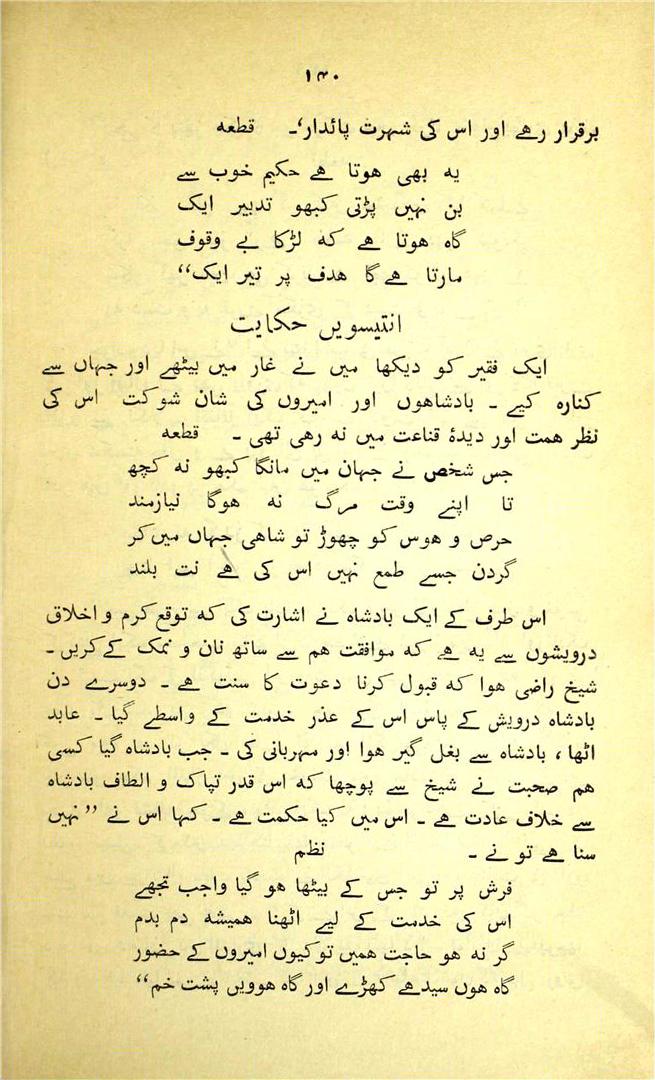 ۱۳۰
برقرار رہے اور اس کی شہرت پائدار‘۔ قطعہ
یہ بھی ہوتا ہے حکیم خوب سے
بن نہیں پڑتی کبھو تدبیر ایک
گاہ ہوتا ہے کہ لڑکا بے وقوف
مارتا ہے گا ہدف پر تیر ایک“
انتیسویں حکایت
ایک فقیر کو دیکھا میں نے غار میں بیٹھے اور جہاں سے
کنارہ کیے ۔ بادشاہوں اور امیروں کی شان شوکت اس کی
نظر ہمت اور دیدۂ قناعت میں نہ رہی تھی ۔ قطعہ
جس شخص نے جہان میں مانگا کبھو نہ کچھ
تا اپنے وقت مرگ نہ ہوگا نیازمند
حرص و ہوس کو چھوڑ تو شاہی جہاں میں کر
گردن جسے طمع نہیں اس کی ہے نت بلند
اس طرف کے ایک بادشاہ نے اشارت کی کہ توقع کرم و اخلاق
درویشوں سے یہ ہے کہ موافقت ہم سے ساتھ نان و نمک کے کریں ۔
شیخ راضی ہوا کہ قبول کرنا دعوت کا سنت ہے ۔ دوسرے دن
بادشاہ درویش کے پاس اس کے عذر خدمت کے واسطے گیا ۔ عابد
اٹھا ، بادشاہ سے بغل گیر ہوا اور مہربانی کی ۔ جب بادشاہ گیا کسی
ہم صحبت نے شیخ سے پوچھا کہ اس قدر تپاک و الطاف بادشاہ
سے خلاف عادت ہے ۔ اس میں کیا حکمت ہے ۔ کہا اس نے ”نہیں
سنا ہے تو نے ۔ نظم
فرش پر تو جس کے بیٹھا ہو گیا واجب تجھے
اس کی خدمت کے لیے اٹھنا ہمیشہ دم بدم
گر نہ ہو حاجت ہمیں تو کیوں امیروں کے حضور
گاہ ہوں سیدھے کھڑے اور گاہ ہوویں پشت خم“